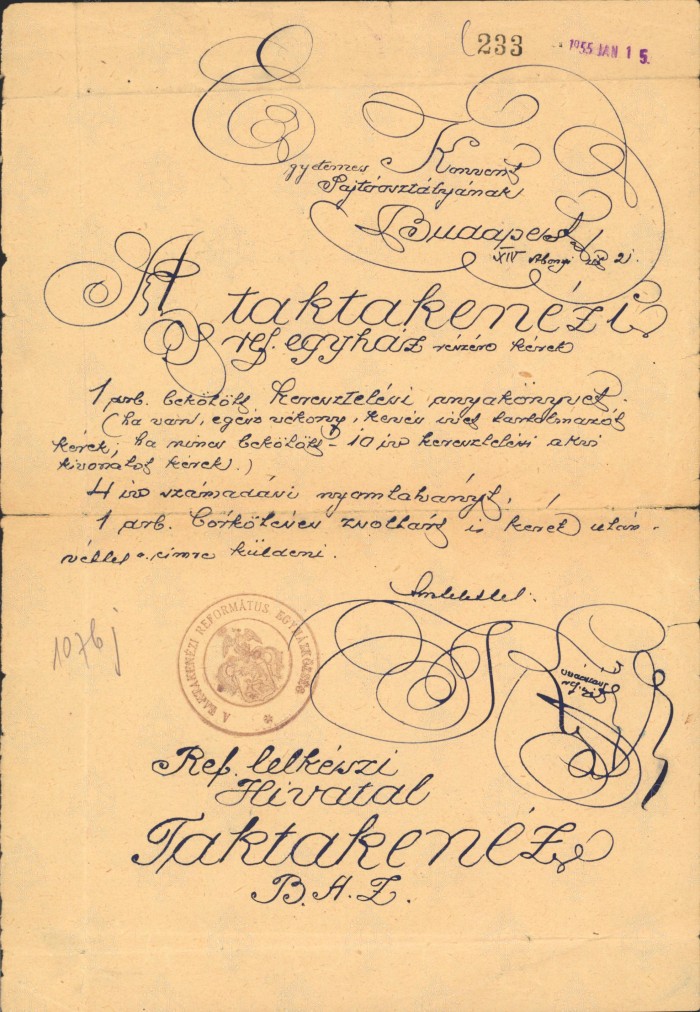 233 1955 JAN. 15.
Egyetemes Konvent
Sajtóosztályának
Budapest
XIV Abonyi u. 21.
A taktakenézi
ref. egyház részére kérek
1 drb. bekötött keresztelési anyakönyvet.
(ha van, egész vékony, kevés ívet tartalmazót
kérek; ha nincs bekötött – 10 ív keresztelési akvi
kivonatot kérek.)
4 ív számadási nyomtatványt,
1 drb. bőrkötéses zsoltárt is kérek után-
véttel e címre küldeni.
Tisztelettel:
1076 j
A TAKTAKENÉZI REFORMÁTUS EGYHÁZKÖZSÉG
Ref. lelkészi
Hivatal
Taktakenéz
B.A.Z.